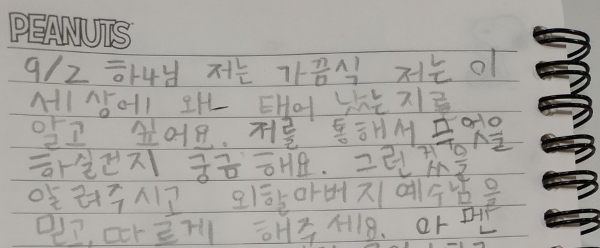 PEANUTS
9/2 하나님 저는 가끔식 저는 이
세상에 왜 태어 낫는지를
알고 싶어요. 저를 통해서 무엇을
하실건지 궁금해요. 그런 것을
알려주시고 외할아버지 예수님을
믿고, 따르게 해주세요. 아멘